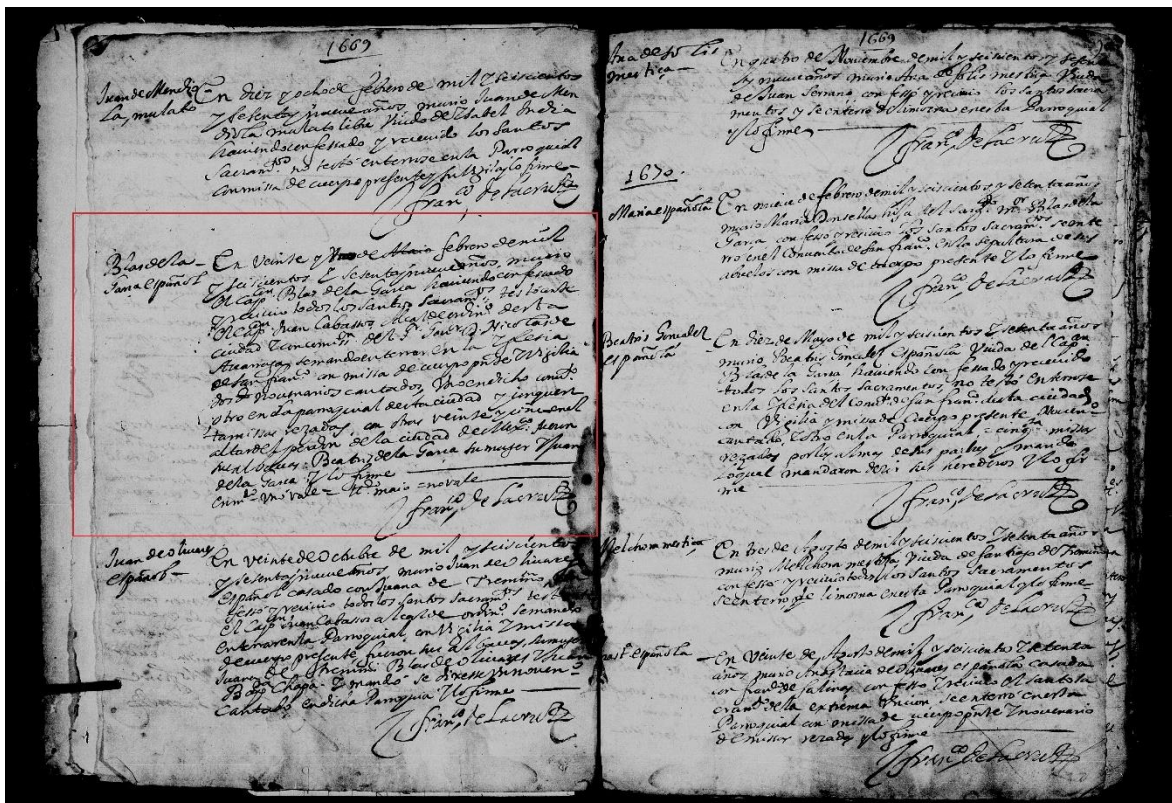 1669
Juan de Mendio
la, mulato
En diez y ocho de febrero de mil y seiscientos
y sesenta y nueve años, murio Juan de Men
diola mulato libre Viudo de Ysabel India
haviendo confessado y recevido los Santos
Sacramtos no testó enterrose en la Parroquial
con missa de cuerpo presente y su Vigilia y lo firme
Franco de la Cruz
Blas de la
Garza español
En veinte y de febrero de mil
y seiscientos y sesenta y nueve años, murio
el Capn Blas de la Garza haviendo confessado
y recivido todos los Santos Sacramtos testó ante
el Capn Juan Cabassos Alcalde ordino desta
ciudad
se mando enterrar en la Yglesia
de San Franco con missa de cuerpo pnte Vigilia
dos novenarios cantados, Uno en dicho convto
otro en la parroquial desta ciudad y cinquen
ta missas rezadas, con otras veinte y cinco en el
altar del perdon de la ciudad de Mexco fueron
sus albaceas: Beatriz de la Garza su mujer Y Juan
de la Garza y lo firme
maio no vale
Franco de la Cruz
Juan de olivares
español
En veinte de Octubre de mil y seiscientos
y sesenta y nueve años, murio Juan de olivares
español casado con Juana de Tremiño
y recivio todos los Santos Sacramtos testó
el Capn Juan Cabassos alcalde ordino se mandó
enterrar en la Parroquial, con Vigilia y missa
de cuerpo presente fueron sus albaceas, su mujer
Juana de Tremiño Blas de olivares Y
Chapa Y mandó se dixese Un noven
cantado en dicha Parroquia Y lo firme
Franco de la Cruz
1669
Ana de so lis
mestiça
En quatro de Noviembre de mil y seiscientos y sesenta
y nueve años murio Ana de solis mestiça Viuda
de Juan Serrano confesó y recivio los Santos Sacra
mentos y se enterro de limosna en esta Parroquial
y lo firme
Franco de la Cruz
1670
Maria española
En nueve de febrero de mil y seiscientos y setenta años
murio Maria Donsella hija del Sargto mor Blas de la
Garza confessó y recivio los Santos Sacramtos se ente
rró en el Convento de San Franco en la sepultura de sus
abuelos con missa de cuerpo presente Y lo firme
Franco de la Cruz
Beatris Gonzales
española
En diez de Mayo de mil y seiscientos Y setenta años
murio, Beatris Gonzales Española Viuda del Capn
Blas de la Garza, haviendo confessado y recevido
todos los Santos Sacramentos, no testó Enterrose
en la Yglesia del Convto de San Franco desta ciudad
con Vigilia y missa de Cuerpo presente Noven
cantado, Y otro en la Parroquial missas
rezadas por las almas de sus padres y marido
lo qual mandaron dezir sus herederos Y lo fir
me
Franco de la Cruz
Melchora mestiça,
En tres de Agosto de mil y seiscientos Y setenta años
murio Melchora mestiça, Viuda de Santiago de Tremiño
confesso y recivio todos los Santos Sacramentos
se enterro de limosna en esta Parroquial y lo firme
Franco de la Cruz
española
En Veinte de Agosto de mil y seiscientos Y setenta
años murio Anastacia de Olivares española casada
con Franco de Salinas confesso Y recivio el santo sa
cramto de la extrema Uncion Se enterro en esta
Parroquial con missa de cuerpo pnte Y novenario
de missas rezadas y lo firme
Franco de la Cruz